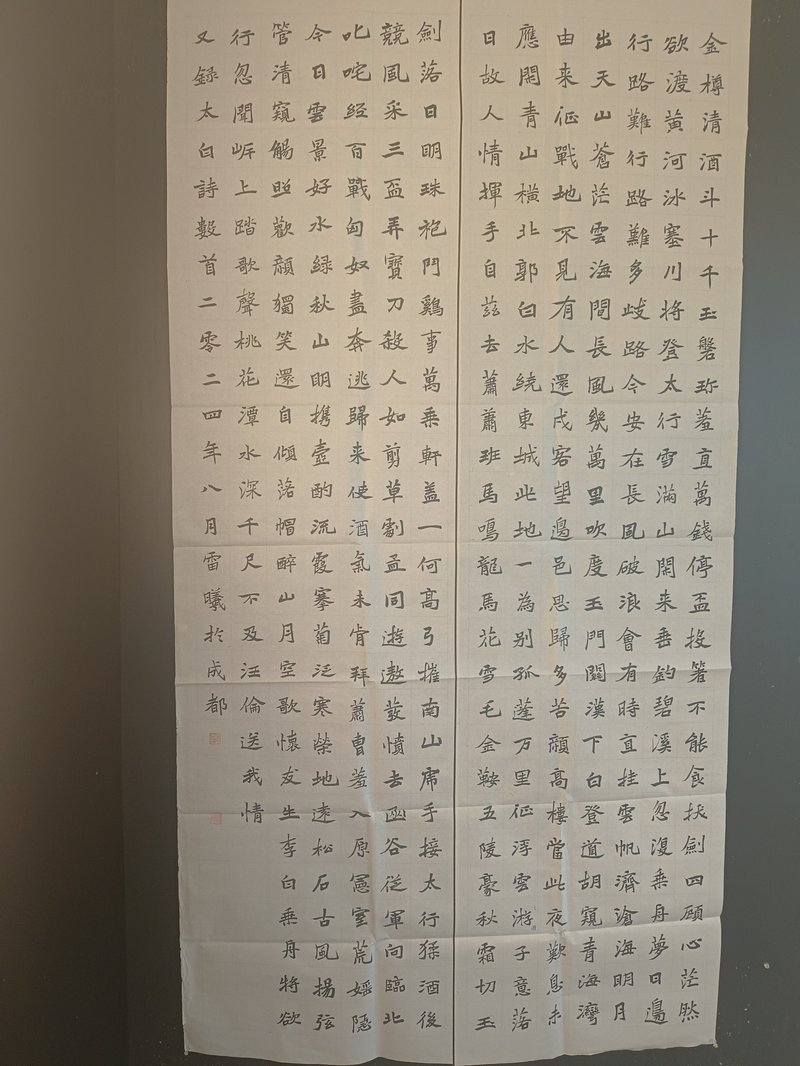 金樽清酒斗十千玉磐珎羞直萬錢停盃投箸不能食拔劍四顧心茫然
欲渡黃河冰塞川將登太行雪滿山閑来垂釣碧溪上忽復乗舟夢日邊
行路難行路難多歧路今安在長風破浪會有時直挂雲帆濟滄海明月
出天山蒼茫雲海間長風幾萬里吹度玉門關漢下白登道胡窺青海灣
由来征戰地不見有人還戍客望邊邑思歸多苦顔高樓當此夜歎息未
應閑青山橫北郭白水繞東城此地一為別孤蓬万里征浮雲游子意落
日故人情揮手自茲去蕭蕭班馬鳴龍馬花雪毛金鞍五陵豪秋霜切玉
劍落日明珠袍鬥鷄事萬乗軒蓋一何高弓摧南山虎手接太行猱酒後
競風采三盃弄寶刀殺人如剪草劇孟同遊遨發憤去函谷從軍向臨北
叱咤經百戰匈奴盡奔逃歸来使酒氣未肯拜蕭曹羞入原憲室荒婬隱
今日雲景好水綠秋山明携壺酌流霞搴菊泛寒榮地遠松石古風揚弦
管清窺觴照歡顔獨笑還自傾落帽醉山月空歌懷友生李白乗舟將欲
行忽聞岸上踏歌聲桃花潭水深千尺不及汪倫送我情
又録太白詩數首二零二四年八月雷曦於成都